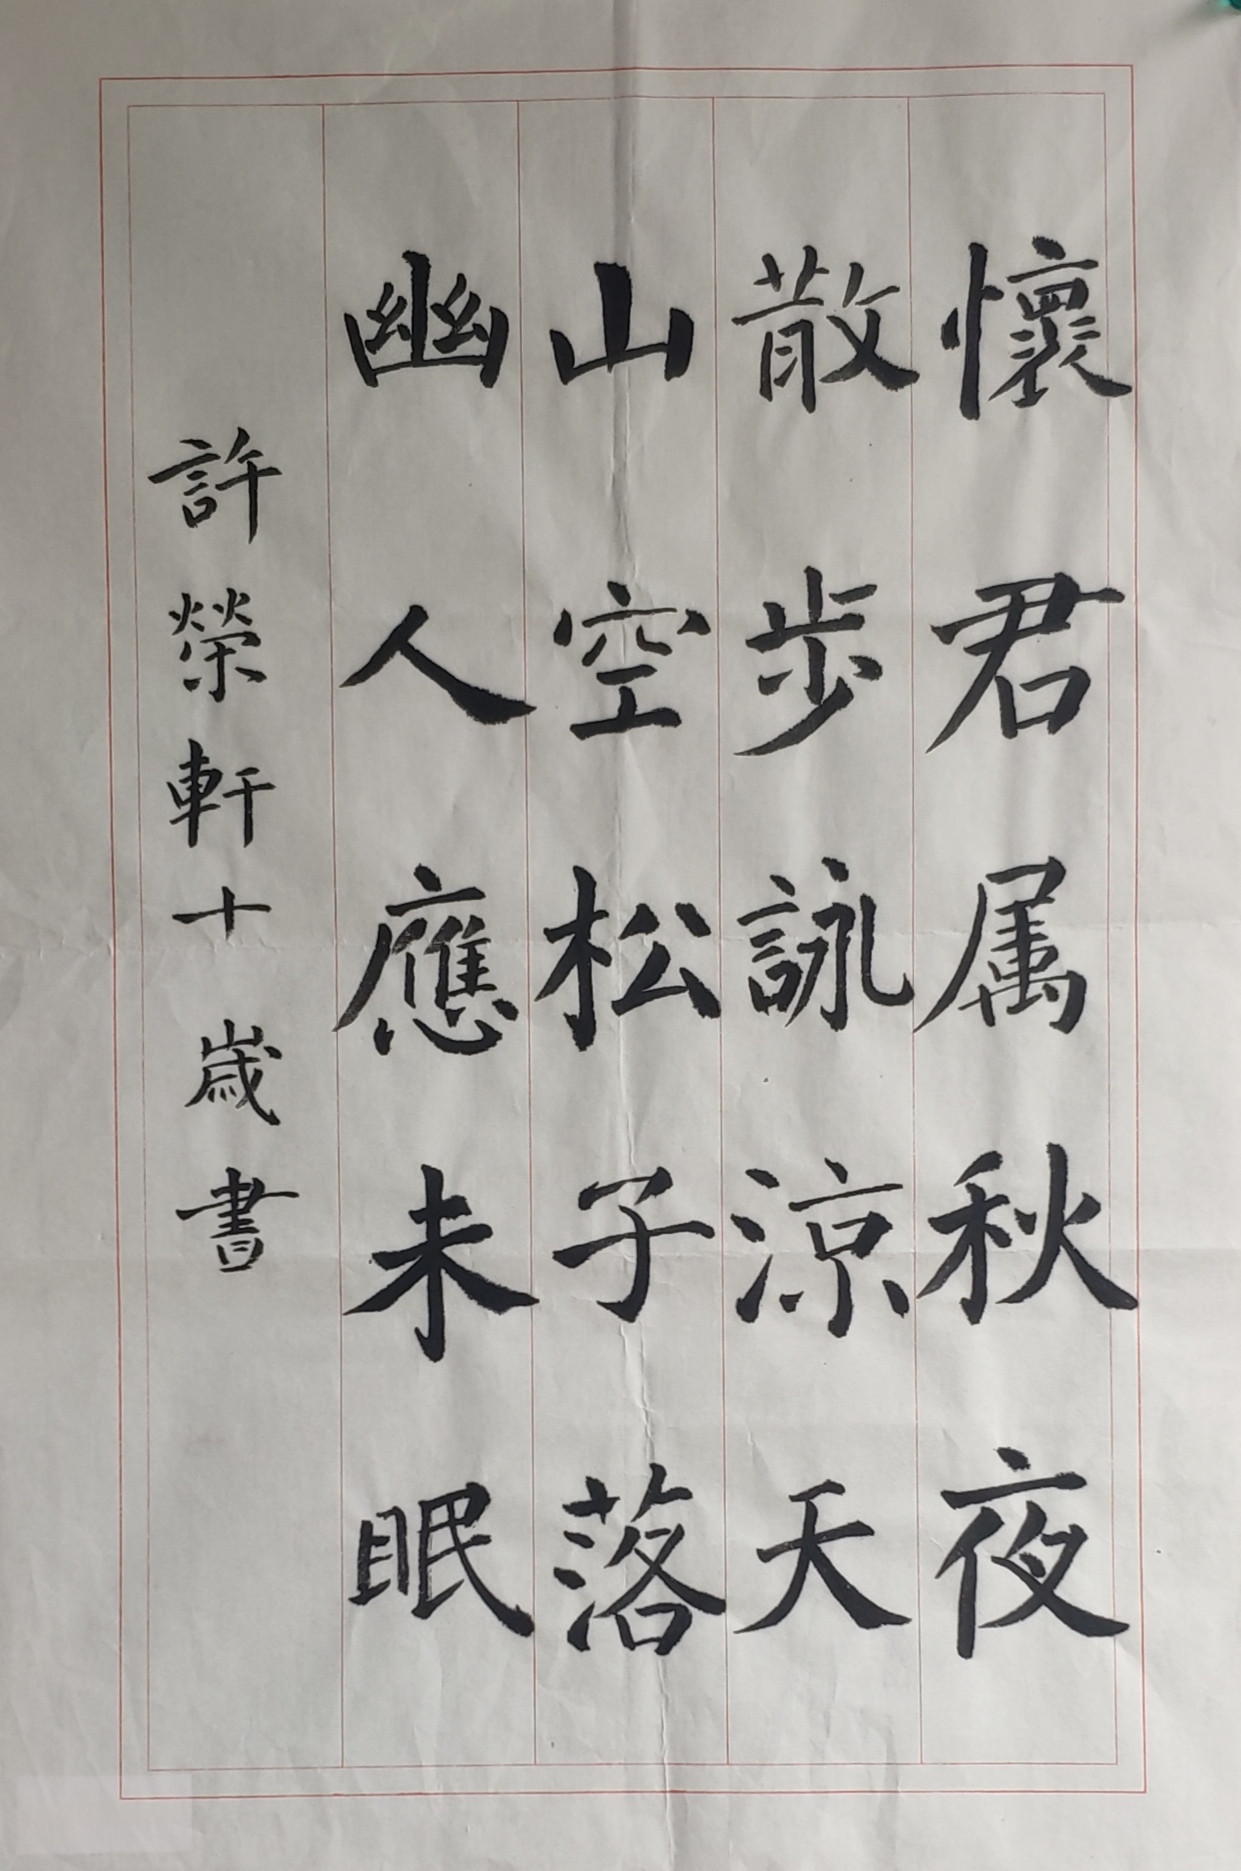 懷君属秋夜
散步詠涼天
山空松子落
幽人應未眠
許榮軒十歲書